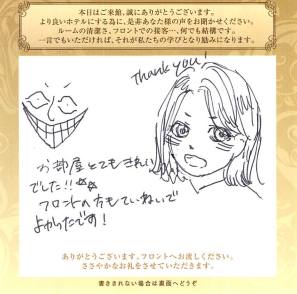 本日はご来館、誠にありがとうございます。
より良いホテルにする為に、是非あなた様の声をお聞かせください。
ルームの清潔さ、フロントでの接客…、何でも結構です。
一言でもいただければ、それが私たちの学びとなり励みになります。
thank you!
お部屋とてもきれい
でした!!
フロントの方もていねいで
よかったです!
ありがとうございます。フロントへお渡しください。
ささやかなお礼をさせていただきます。
書ききれない場合は裏面へどうぞ